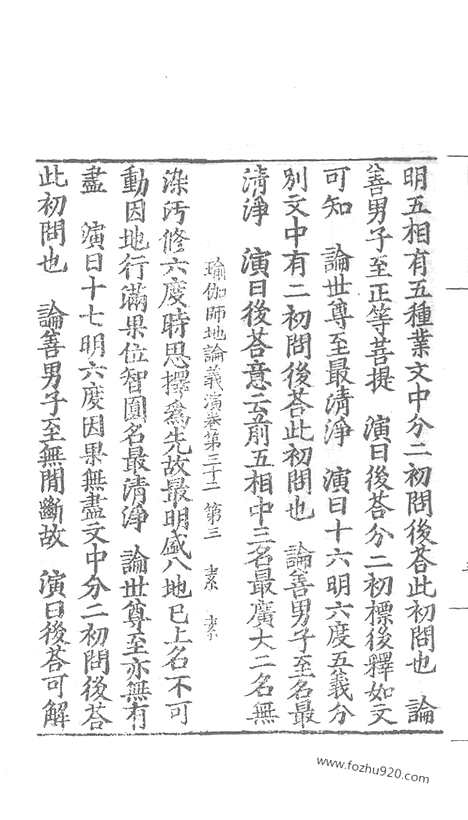 明五相有五種業文中分二初問後荅此初問也　論
善男子至正等菩提　演曰後荅分二初標後釋如文
可知　論世尊至最清淨　演曰十六明六度五義分
別文中有二初問後荅此初問也　論善男子至名最
清淨　演曰後荅意云前五相中三名最廣大二名無
瑜伽師地論義演卷第三十二　第三
染汚修六度時思擇爲先故最明盛八地已上名不可
動因地行滿果位智圓名最清淨　論世尊至亦無有
盡　演曰十七明六度因果無盡文中分二初問後荅
此初問也　論善男子至無間斷故　演曰後荅可解
www.fozhu920.com